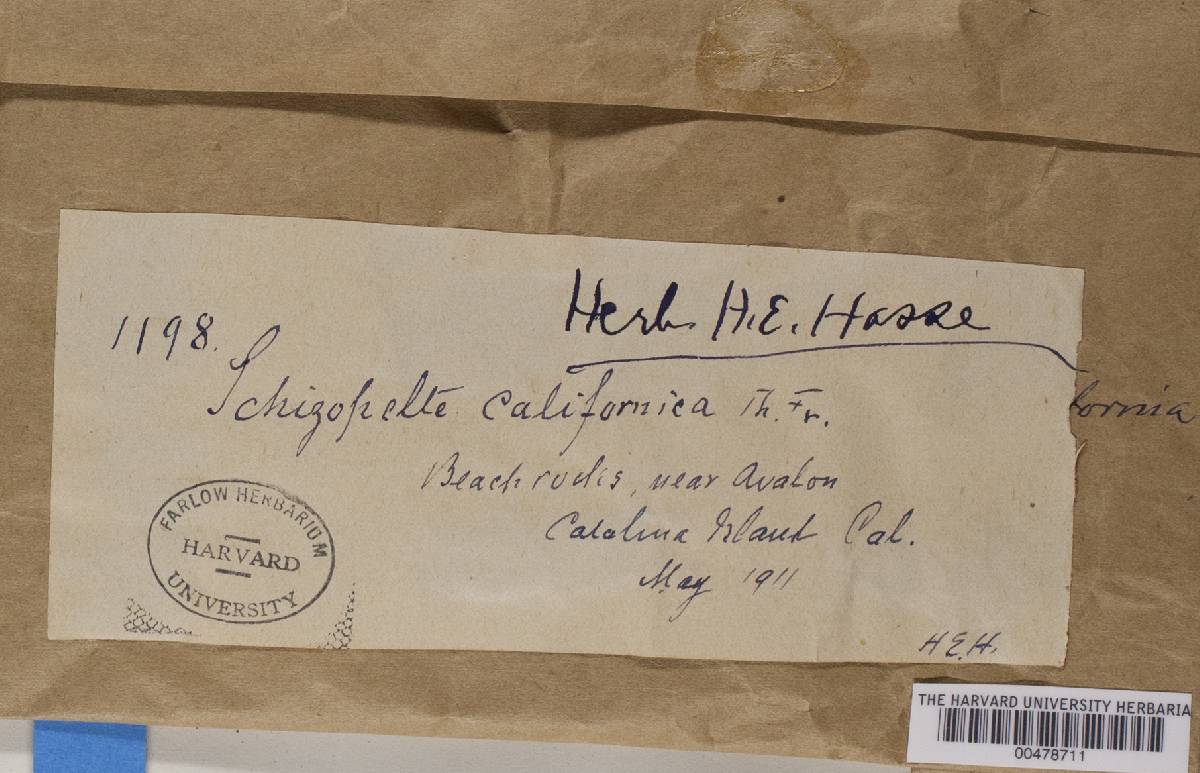 Herb. H.E. Hasse
1198.
Schizopelte californica Th. Fr.
fornia
Beach rocks, near Avalon
Catalina Island Cal.
May 1911
H.E.H.
FARLOW HERBARIUM
HARVARD
UNIVERSITY
THE HARVARD UNIVERSITY HERBARIA
00478711